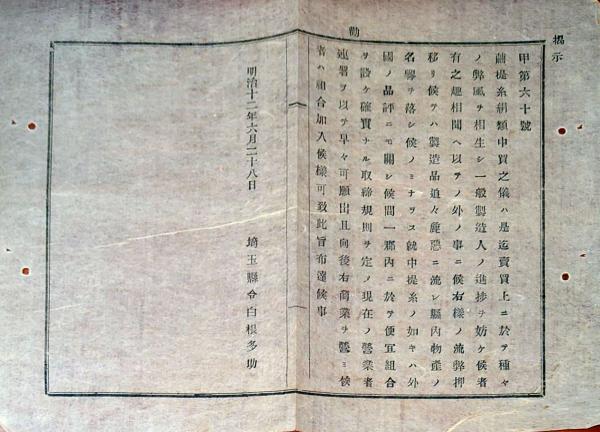 揭示
勸
甲第六十號
繭提糸絹類中買之儀ハ是迄賣買上ニ於テ種々
ノ弊風ヲ相生シ一般製造人ノ進捗ヲ妨ケ候者
有之趣相聞ヘ以テノ外ノ事ニ候右樣ノ流弊押
移リ候テハ製造品追々麁惡ニ流レ縣內物產ノ
名譽ヲ落シ候ノミナラス就中提糸ノ如キハ外
國ノ品評ニモ關シ候間一郡內ニ於テ便宜組合
ヲ設ケ確實ナル取締規則ヲ定メ現在ノ營業者
連署ヲ以テ早々可願出且向後右商業ヲ營ミ候
者ハ組合加入候樣可致此旨布達候事
明治十二年六月二十八日
埼玉縣令白根多助